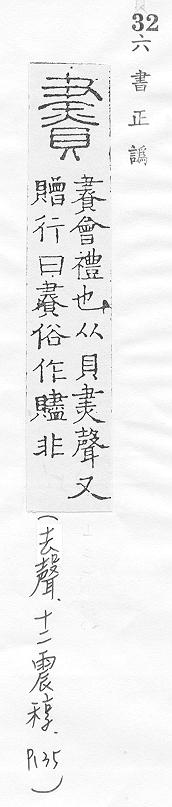 32
六書正譌
賮
賮會禮也从貝㶳聲又
贈行曰賮俗作贐非
(去聲.十二震稕.P135)